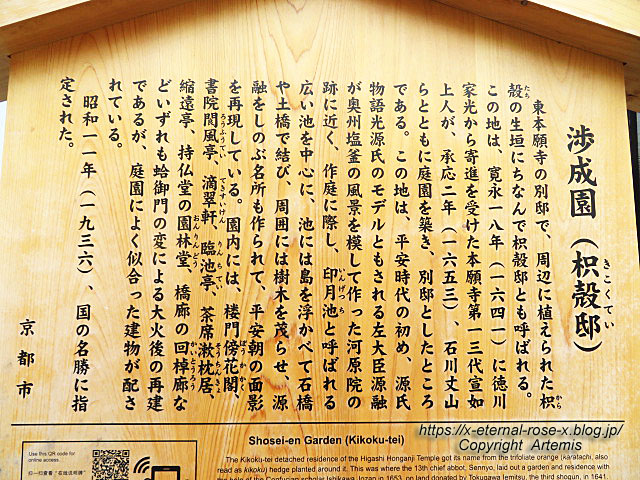 渉成園(枳殻邸)
きこくてい
東本願寺の別邸で、周辺に植えられた枳
殻の生垣にちなんで枳殻邸とも呼ばれる。
この地は、寛永一八年(一六四一)に徳川
家光から寄進を受けた本願寺第一三代宣如
上人が、承応二年(一六五三)、石川丈山
らとともに庭園を築き、別邸としたところ
である。この地は、平安時代の初め、源氏
物語光源氏のモデルともされる左大臣源融
が奥州塩釜の風景を模して作った河原院の
跡に近く、作庭に際し、印月池と呼ばれる
広い池を中心に、池には島を浮かべて石橋
や土橋で結び、周囲には樹木を茂らせ、源
融をしのぶ名所も作られて、平安朝の面影
を再現している。園内には、楼門傍花閣、
書院閬風亭、滴翠軒、臨池亭、茶席漱枕居、
縮遠亭、持仏堂の園林堂、橋廊の回棹廊な
どいずれも蛤御門の変による大火後の再建
であるが、庭園によく似合った建物が配さ
れている。
昭和一一年(一九三六)、国の名勝に指
定された。
京都市
Shosei-en Garden (Kikoku-tei)
Use this QR code for
online access.
The Kikoku-tei detached residence of the Higashi Honganji Temple got its name from the trifoliate orange (karatachi, also
read as kikoku) hedge planted around it. This was where the 13th chief abbot, Sennyo, laid out a garden and residence with
the help of the Confucian scholar Ishikawa Jozan in 1653, on land donated by Tokugawa Iemitsu, the third shogun, in 1641.
https://x-eternal-rose-x.blog.jp/
Copyright Artemis